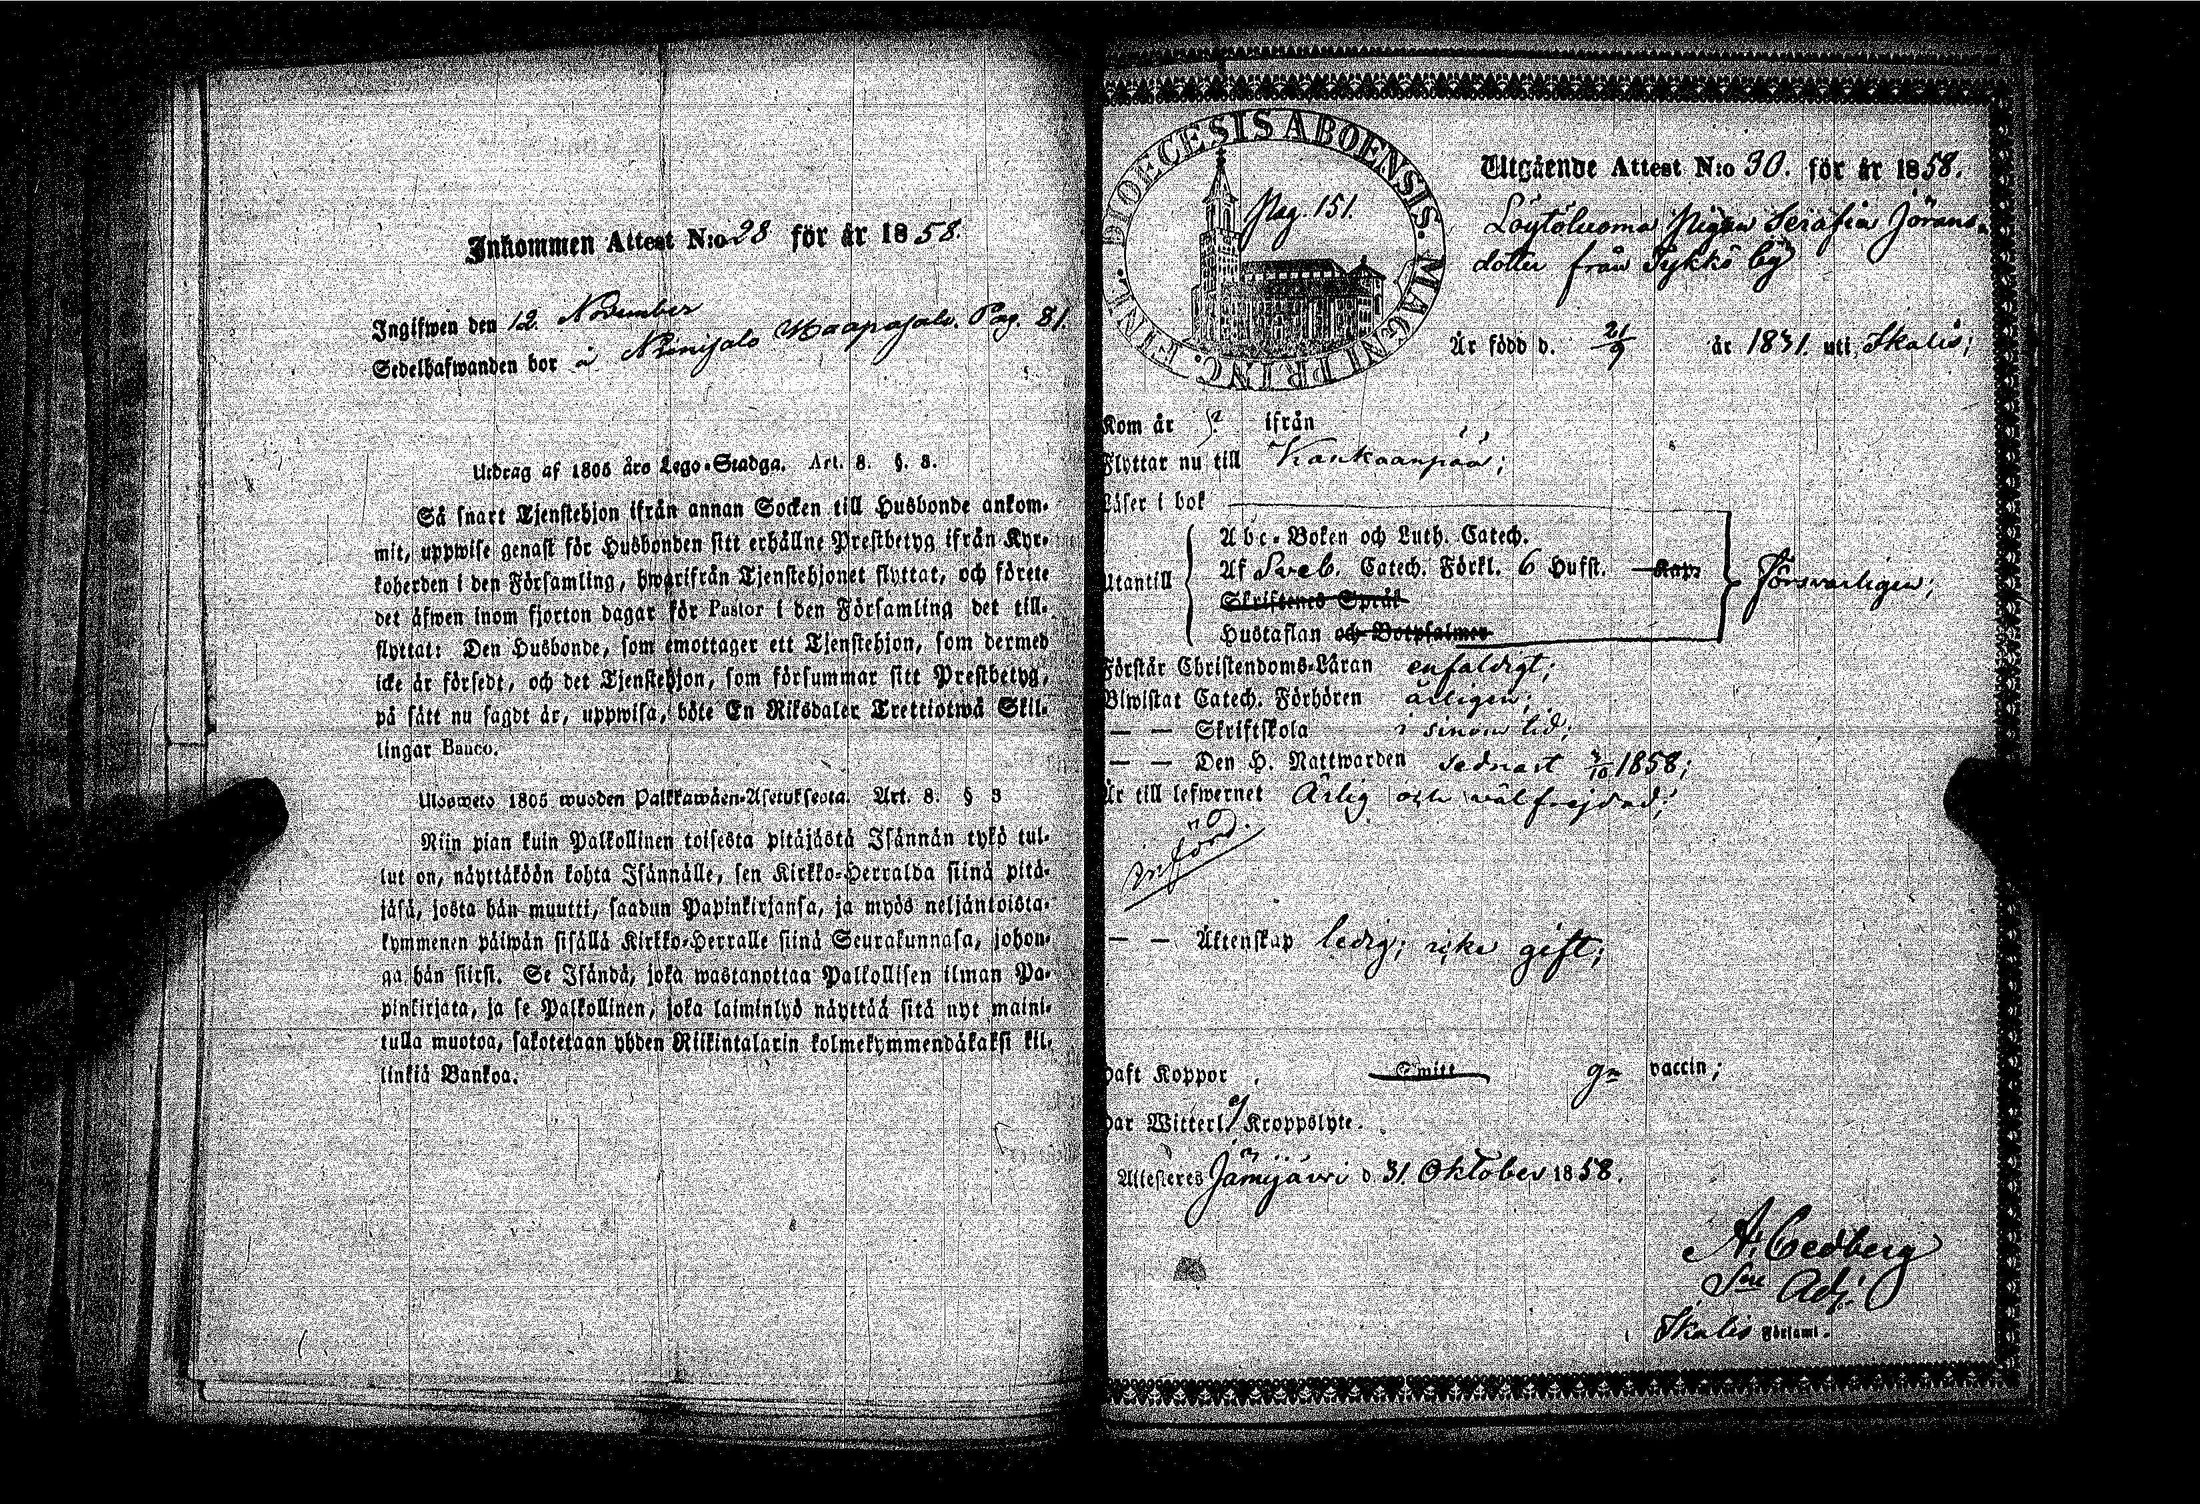 Inkommen Attest N:o 28 för år 1858.
Ingifwen den 12 November
Sedelhafwanden bor å Niinisalo Maapajalo. Pag. 81.
Utdrag af 1805 års Lego-Stadga. Art. 8. §. 3.
Så snart Tjenstehjon ifrån annan Socken till Husbonde ankom-
mit, uppwise genast för Husbonden sitt erhållne Prestbetyg ifrån Kyr-
koherden i den Församling, hwarifrån Tjenstehjonet flyttat, och förete
det äfwen inom fjorton dagar för Pastor i den Församling det till-
flyttat: Den Husbonde, som emottager ett Tjenstehjon, som dermed
icke är försedt, och det Tjenstehjon, som försummar sitt Prestbetyg,
på sätt nu sagdt är, uppwisa, böte En Riksdaler Trettiotwå Skil-
lingar Banco.
Ulosweto 1805 wuoden Palkkawäen-Asetuksesta. Art. 8. § 3
Niin pian kuin Palkollinen toisesta pitäjästä Isännän tykö tul-
lut on, näyttäköön kohta Isännälle, sen Kirkko-Herralda siinä pitä-
jäsä, josta hän muutti, saadun Papinkirjansa, ja myös neljäntoista-
kymmenen päiwän sisällä Kirkko-Herralle siinä Seurakunnasa, johon-
ga hän siirsi. Se Isändä, joka wastanottaa Palkollisen ilman Pa-
pinkirjata, ja se Palkollinen, joka laiminlyö näyttää sitä nyt maini-
tulla muotoa, sakotetaan yhden Riikintalarin kolmekymmendäkaksi kil-
linkiä Bankoa.
DIOECESIS ABOENSIS. MAGNI PRINC. FINL.
Pag. 151.
Utgående Attest N:o 30. för år 1858.
Löytöluoma Pigan Serafia Jörans-
dotter från Tykkö by
Är född d. 21/9 år 1831. uti Ikalis;
Kom år ? ifrån
Flyttar nu till Kankaanpää;
Läser i bok
Utantill
Abc-Boken och Luth. Catech.
Af Sveb. Catech. Förkl. 6 Hufst. Kap.
Skriftenes Språk
Hustaflan och Botpsalmer
Försvarligen;
Förstår Christendoms-Läran enfaldigt;
Biwistat Catech. Förhören årligen;
— — Skriftskola i sinom tid;
— — Den H. Nattwarden sednast 3/10 1858;
Är till lefwernet Ärlig och välfrejdad;
införd.
— — Äktenskap ledig; icke gift;
Haft Koppor, Smitt gm vaccin;
Har Witterl. ej Kroppslyte.
Attesteres Jämijärvi d. 31. Oktober 1858.
A. Cedberg
Sne Adj.
Ikalis Förſaml.